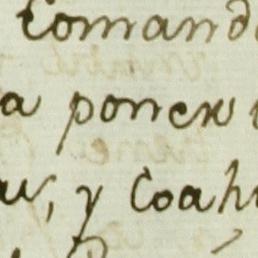 Comand
a poner
, y Coah